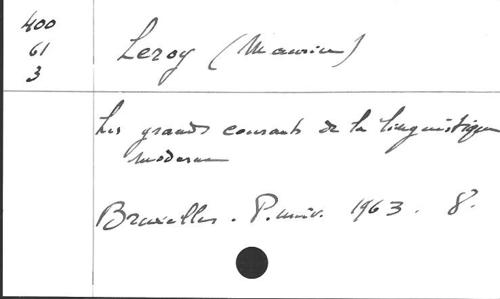 400
61
3
Leroy (Maurice)
Les grands courants de la linguistique
moderne
Bruxelles. P. univ. 1963. 8.